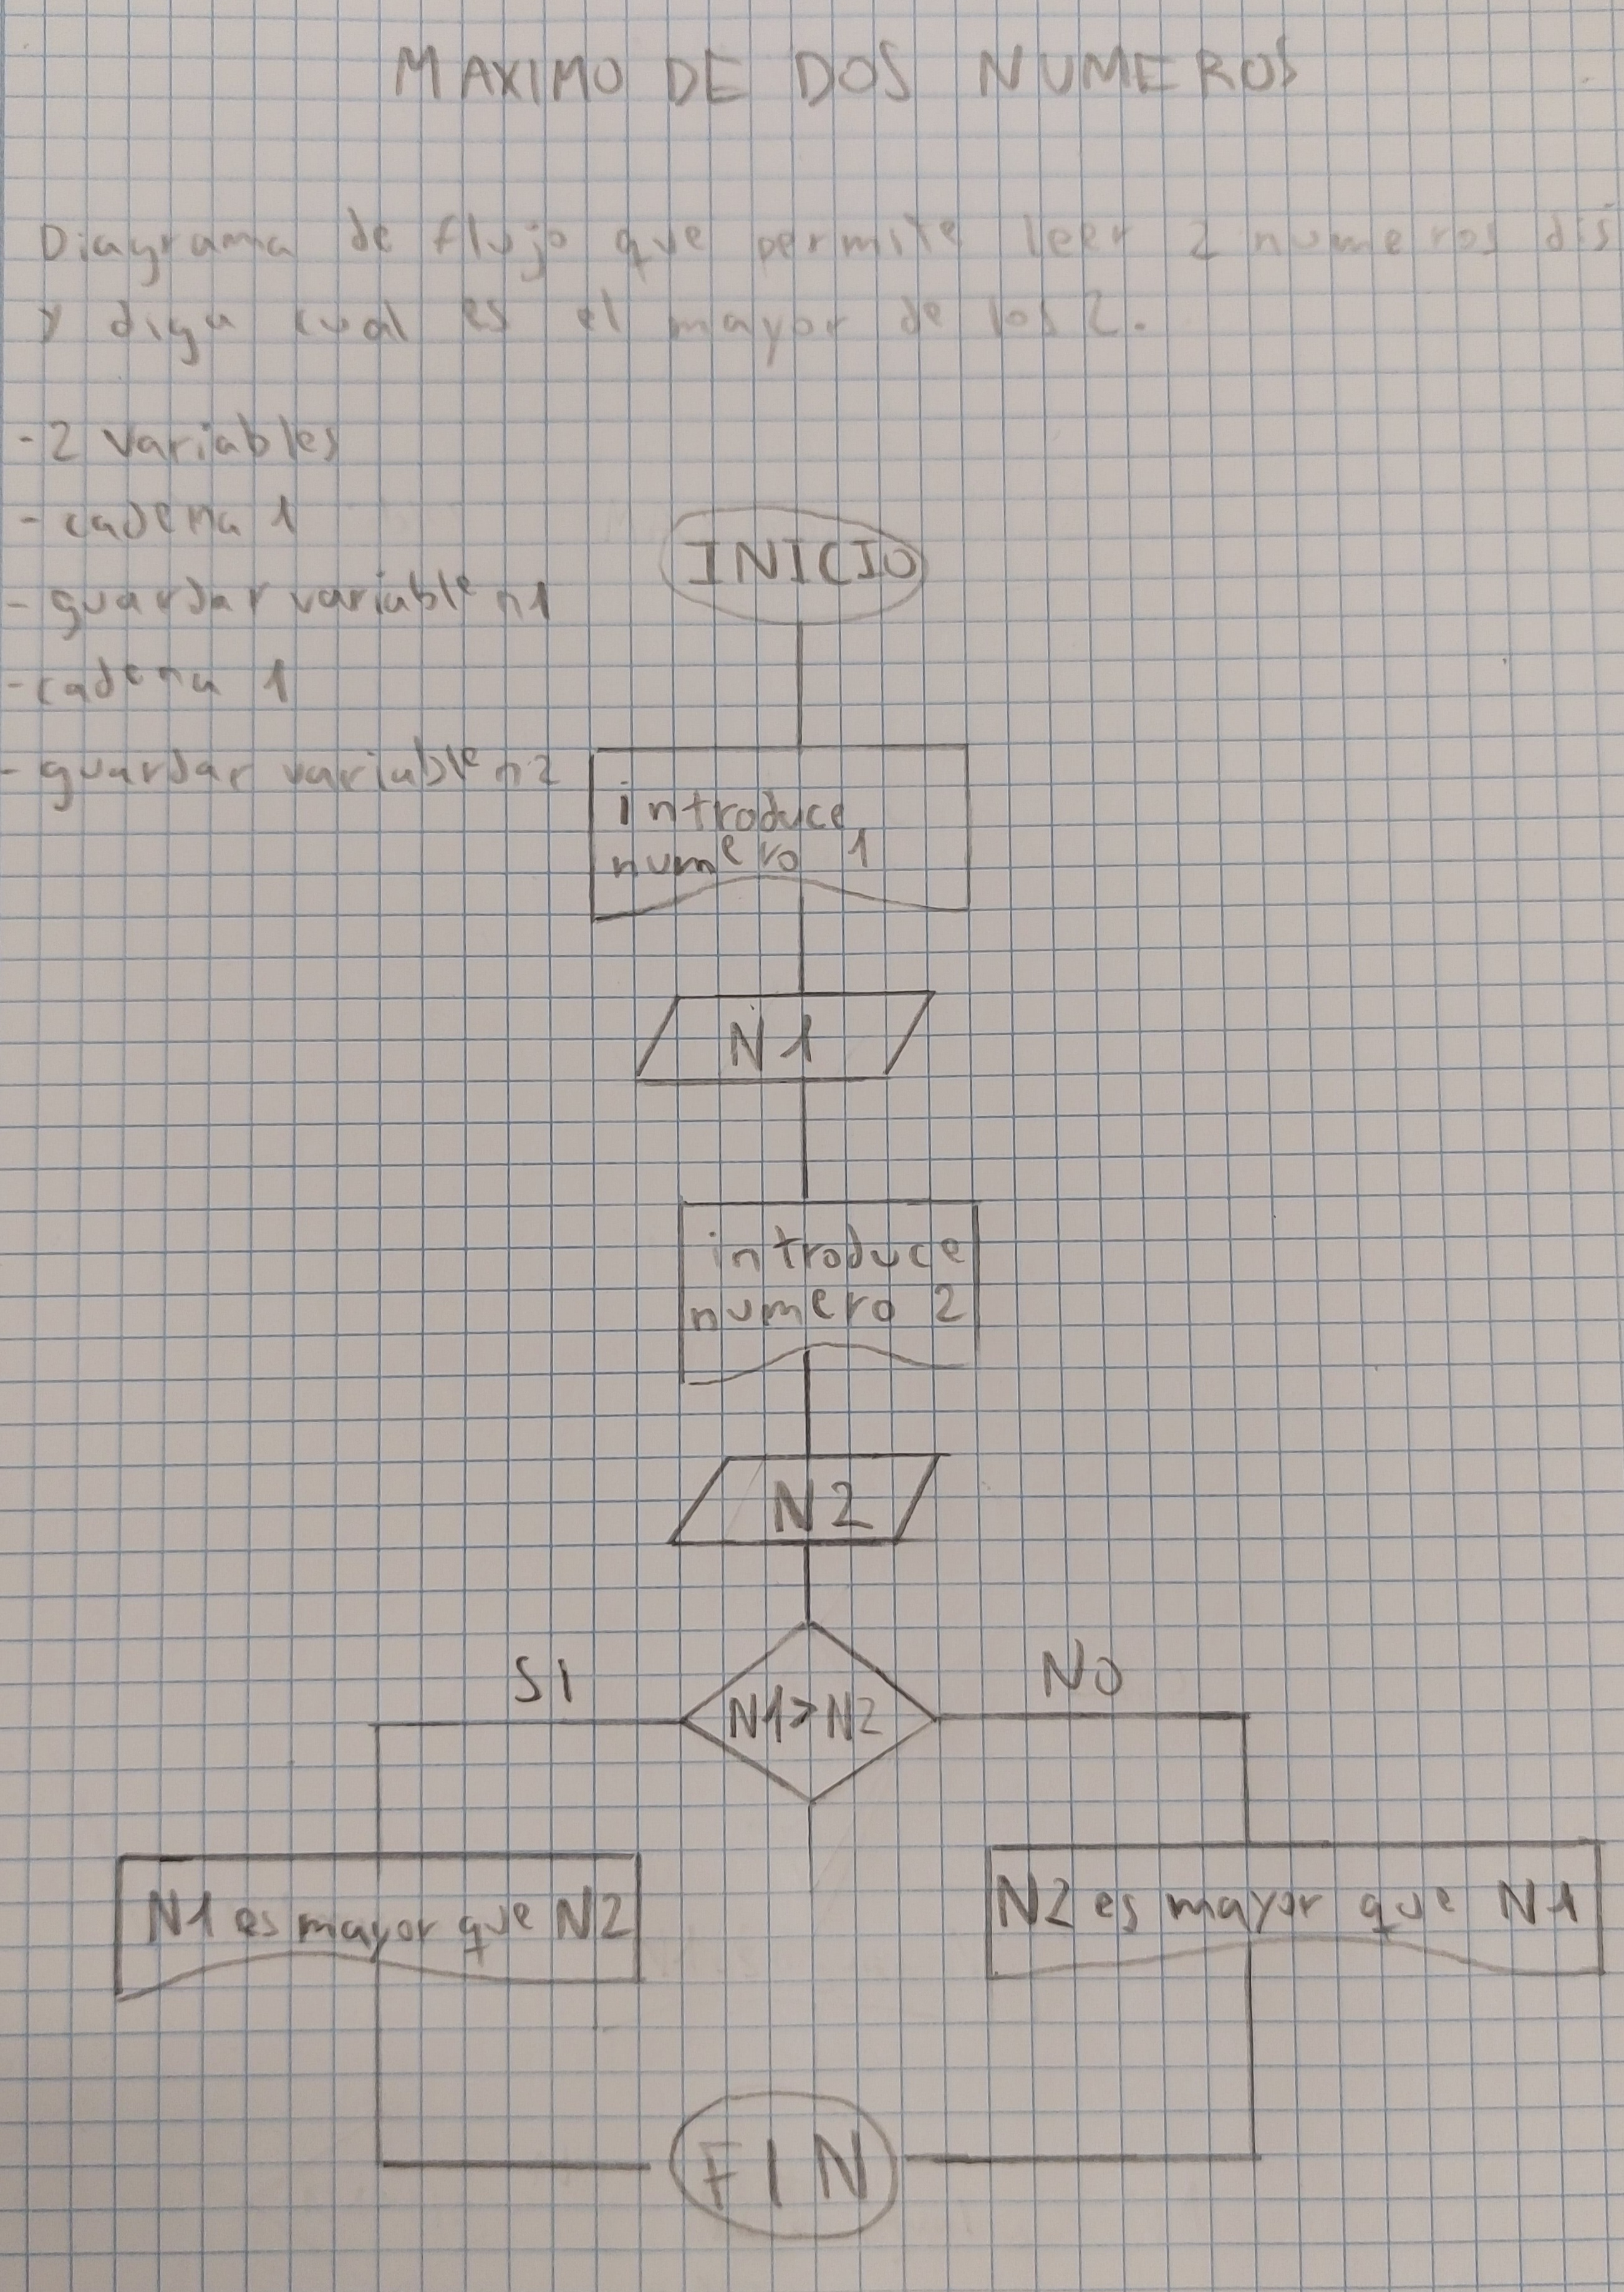 MAXIMO DE DOS NUMEROS
Diagrama de flujo que permite leer 2 numeros
y diga cual es el mayor de los 2.
-2 variables
- cadena 1
- guardar variable n1
- cadena 1
- guardar variable n2
INICIO
introduce
numero 1
N1
introduce
numero 2
N2
SI
NO
N1>N2
N1 es mayor que N2
N2 es mayor que N1
FIN